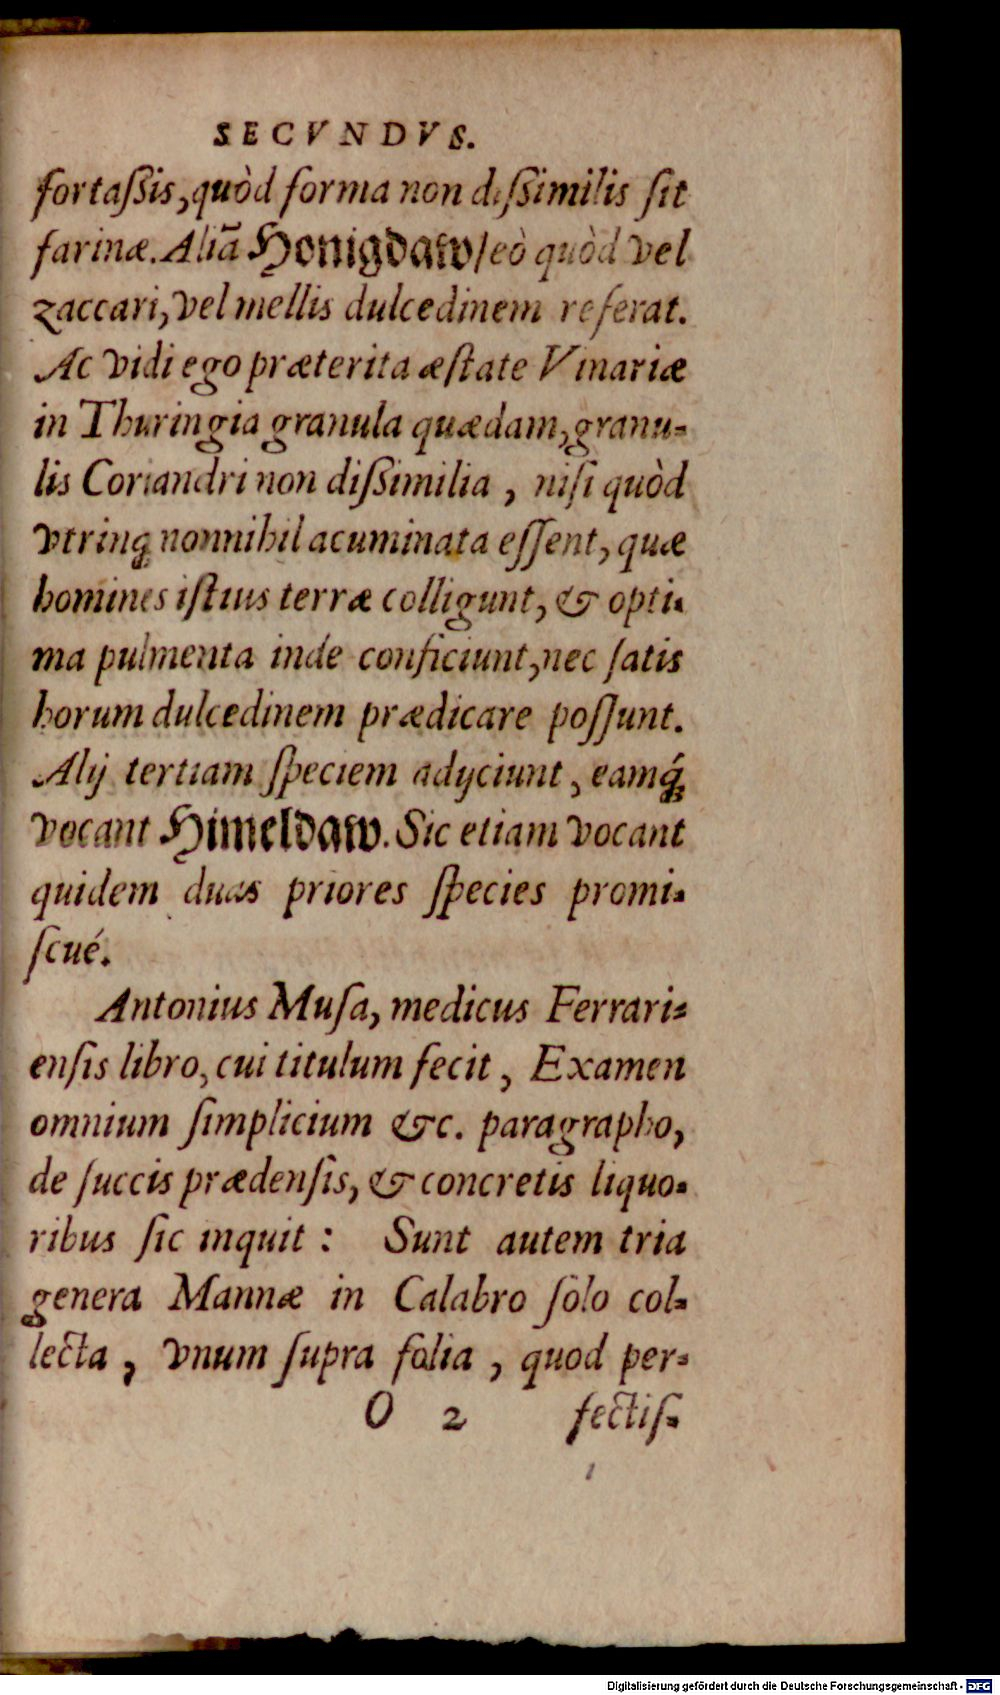 SECVNDVS.
fortaßis, quòd forma non dißimilis ſit
farinæ. Aliā Honigdaw/ eò quòd vel
zaccari, vel mellis dulcedinem referat.
Ac vidi ego præterita æſtate Vinariæ
in Thuringia granula quædam, granu-
lis Coriandri non dißimilia, niſi quòd
vtrinq; nonnihil acuminata eſſent, quæ
homines iſtius terræ colligunt, & opti-
ma pulmenta inde conficiunt, nec ſatis
horum dulcedinem prædicare poſſunt.
Alij tertiam ſpeciem adijciunt, eamq́;
vocant Himeldaw. Sic etiam vocant
quidem duas priores ſpecies promi-
ſcué.
Antonius Muſa, medicus Ferrari-
enſis libro, cui titulum fecit, Examen
omnium ſimplicium &c. paragrapho,
de ſuccis prædenſis, & concretis liquo-
ribus ſic inquit: Sunt autem tria
genera Mannæ in Calabro ſolo col-
lecta, vnum ſupra folia, quod per-
O 2 fectiſ-
Digitalisierung gefördert durch die Deutsche Forschungsgemeinschaft - DFG